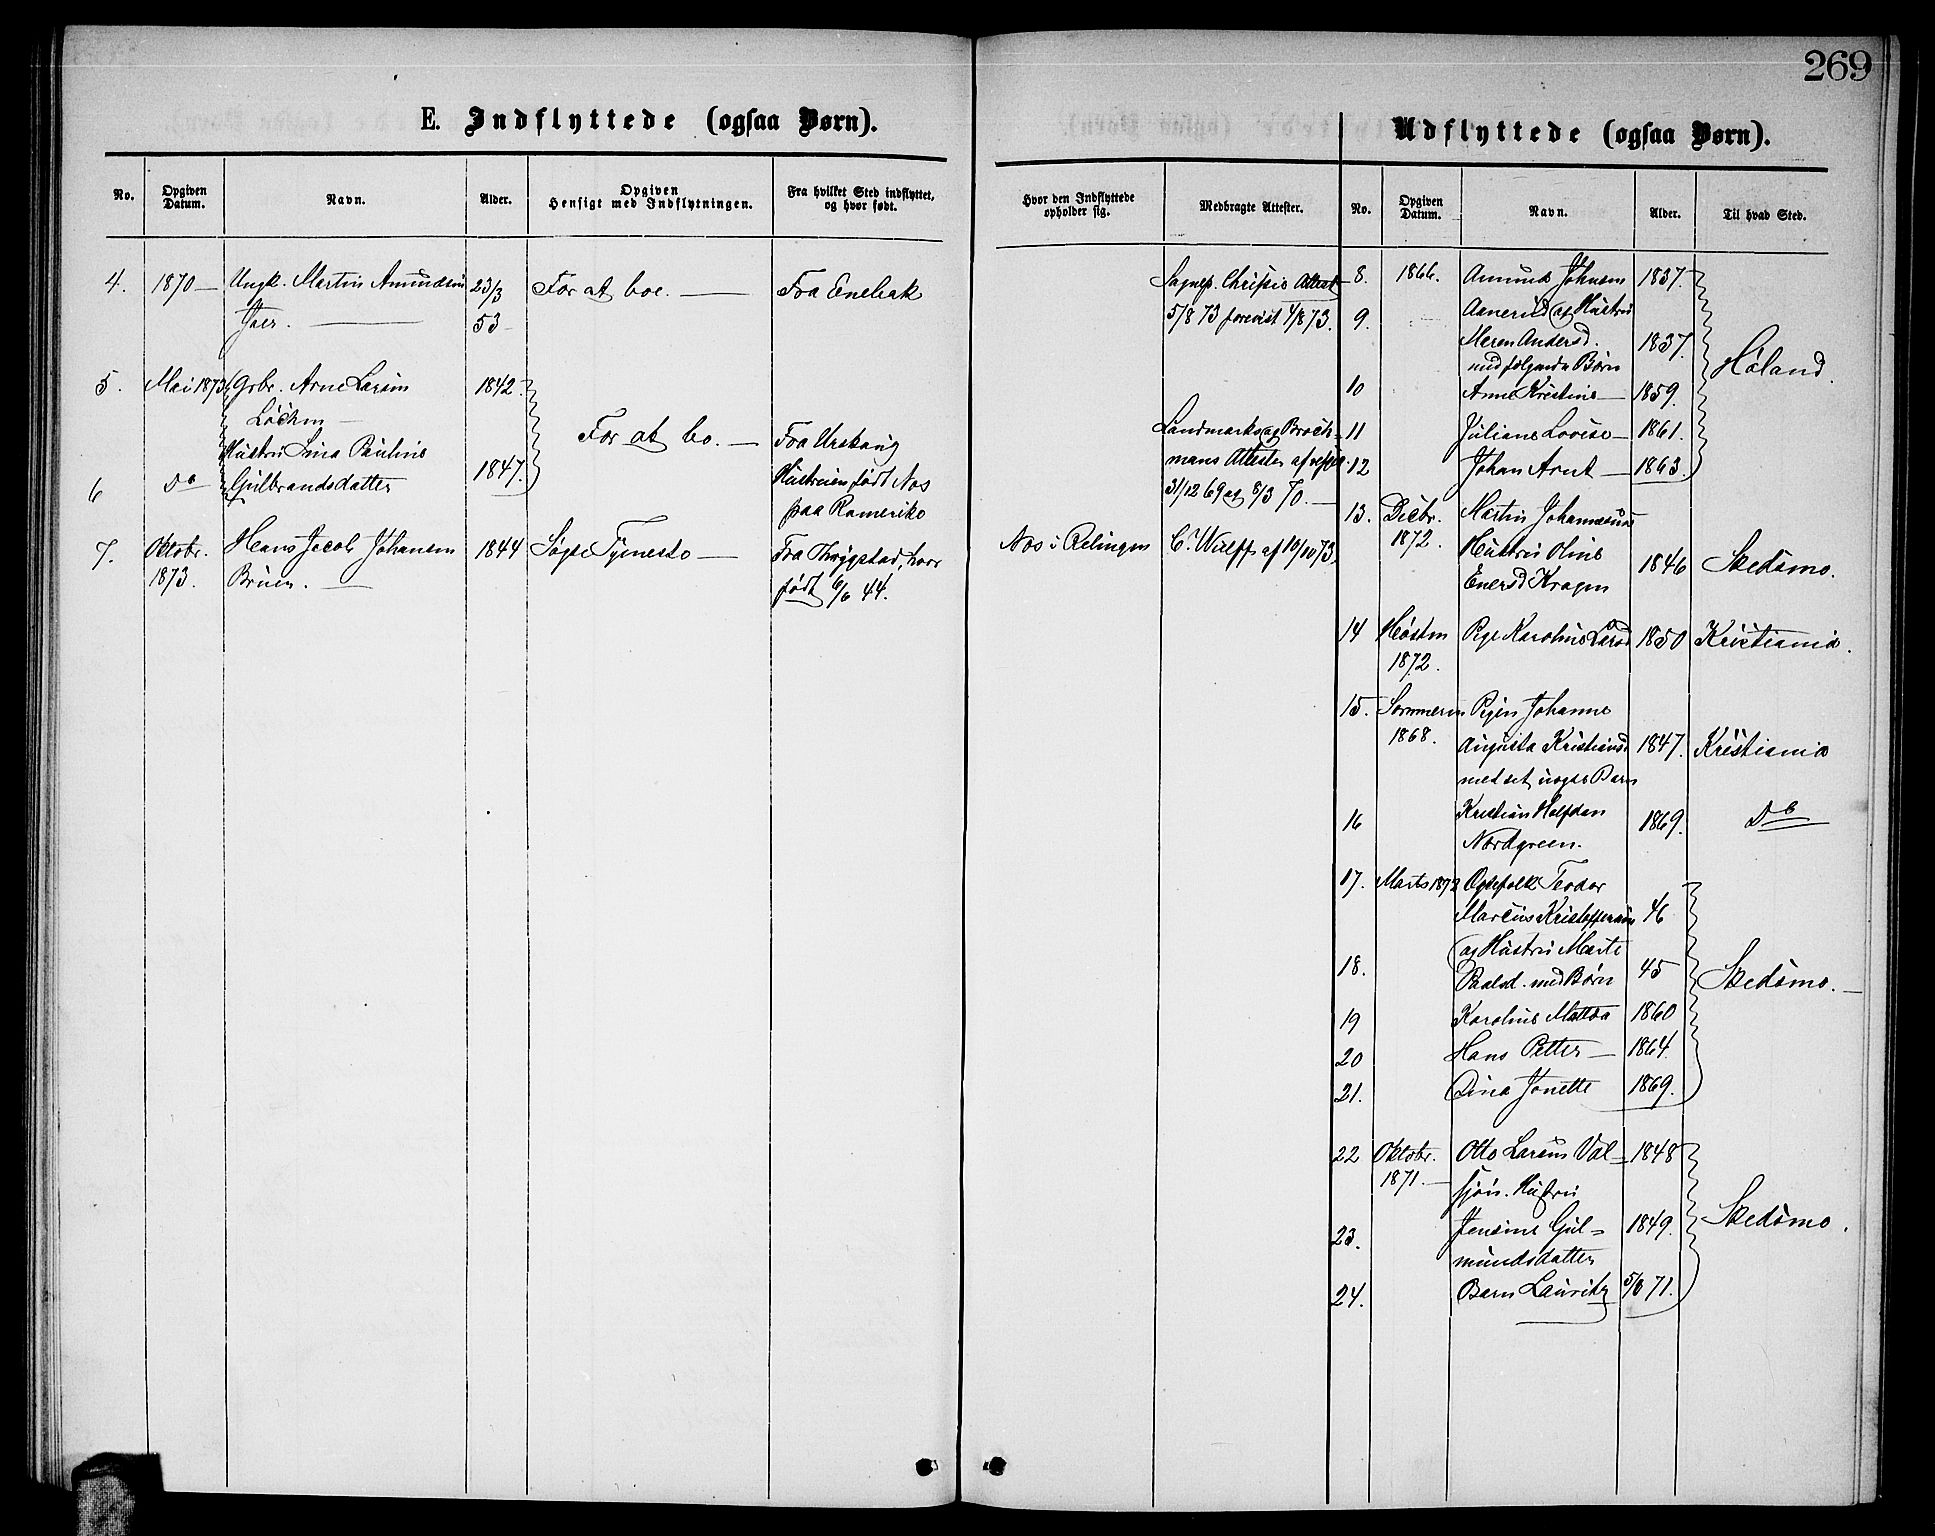 269
E. Indflyttede (ogsaa Børn).
No.
Opgiven Datum.
Navn.
Alder.
Opgiven Hensigt med Indflytningen.
Fra hvilket Sted indflyttet, og hvor født.
Hvor den Indflyttede opholder sig.
Medbragte Attester.
4. 1870 — Ungk. Martin Amundsen 23/3 For at boe. — Fra Enebak Sognep. Attest
53 5/8 73 forevist 4/8 73.
5. Mai 1873 Gbr. Arne Larsen 1842.
For at bo. — Fra Urskoug Landmarks og Broch-
Hustru Lina Pauline mans Attester af
6 Do Gulbrandsdatter 1847. Hustruen født Nes 31/12 69 og 8/3 70. —
paa Romeriko
7. Oktobr. Hans Jacob Johansen 1844 Søge Tjeneste — Fra Trøgstad, hvor Nes i Relingen C. Wulff af 10/10 73.
1873. Bruen. — født 6/6 44.
Udflyttede (ogsaa Børn).
No.
Opgiven Datum.
Navn.
Alder.
Til hvad Sted.
8. 1866. Amund Johnsen 1837.
9. Aanerud og Hustru
Maren Andersd. 1837. Høland.
med følgende Børn
10 Anne Kristine — 1859.
11 Juliane Lovise — 1861.
12 Johan Arnt — 1863.
13. Decbr. Martin Johannesens
1872. Hustru Oline 1846 Skedsmo.
Enersd Kragen
14 Høsten Pge Karoline Larsd 1850 Kristiania.
1872.
15. Sommeren Pigen Johanne
1868. Augusta Kristiansd 1847. Kristiania
med et uægte Barn
16 Kristian Halfdan 1869. Do
Nordgreen.
17. Marts 1872 Ægtefolk Teodor
Marcus Kristoffersen 46
og Hustru Marte
18. Paalsd. med Børn 45 Skedsmo. —
19 Karoline Matea 1860
20 Hans Petter — 1864.
21. Dina Jonette 1869.
22 Oktobr. Otto Larsen Val- 1848
1871. — sjøn. Hustru
23. Jensine Gul- 1849. Skedsmo.
mundsdatter
24. Barn Lauritz 71.